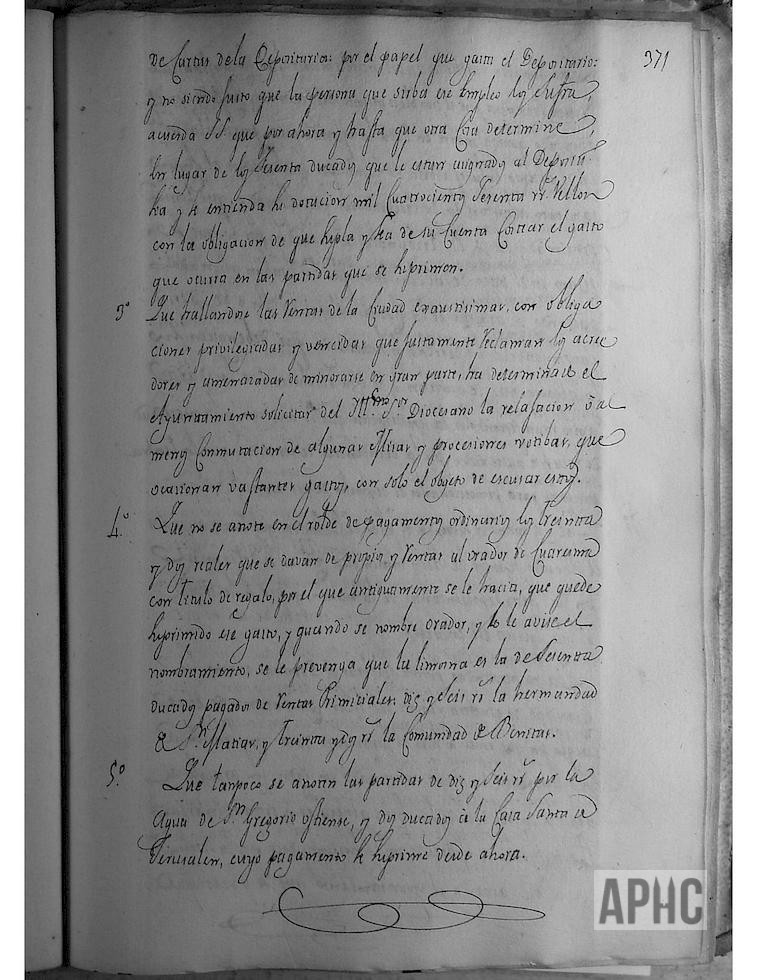 371
de Cartas dela Depositaria: por el papel que gasta el Depositario:
y no siendo justo que la persona que sirba ese Empleo los sufra,
acuerda SS. que por ahora y hasta que otra Cosa determine,
en lugar de los Sesenta ducados que le estan asignados al Deposit.º
sea y se entienda su dotacion mil Cuatrocientos Sesenta rr.s Vellon
con la obligacion de que supla y sea de su Cuenta Costear el gasto
que ocurra en las partidas que se suprimen.
3º Que hallandose las Rentas de la Ciudad exaustisimas, con obliga
ciones privilegiadas y vencidas que justamente Reclaman los acree
dores y amenazadas de minorarse en gran parte, ha determinado el
Ayuntamiento solicitar del Ill.mo S.or Diocesano la relajacion ò al
menos Conmutacion de algunas Misas y procesiones votibas, que
ocasionan vastantes gastos, con solo el objeto de escusar estos.
4º Que no se anote en el rolde de pagamentos ordinarios los treinta
y dos reales que se davan de propios y Rentas al orador de Cuaresma
con titulo de regalo, por el que antiguamente se le hacia, que quede
suprimido ese gasto, y quando se nombre orador, y se le avise el
nombramiento, se le prevenga que la limosna es la de Sesenta
ducados pagados de Rentas Primiciales: diez y Seis rr.s la hermandad
de S.n Matias, y treinta y dos rr.s la Comunidad de Benitas.
5º Que tanpoco se anoten las partidas de diez y Seis rr.s por la
Agua de S.n Gregorio ostiense, y dos ducados à la Casa Santa de
Jerusalen, cuyo pagamento se suprime desde ahora.
APHC